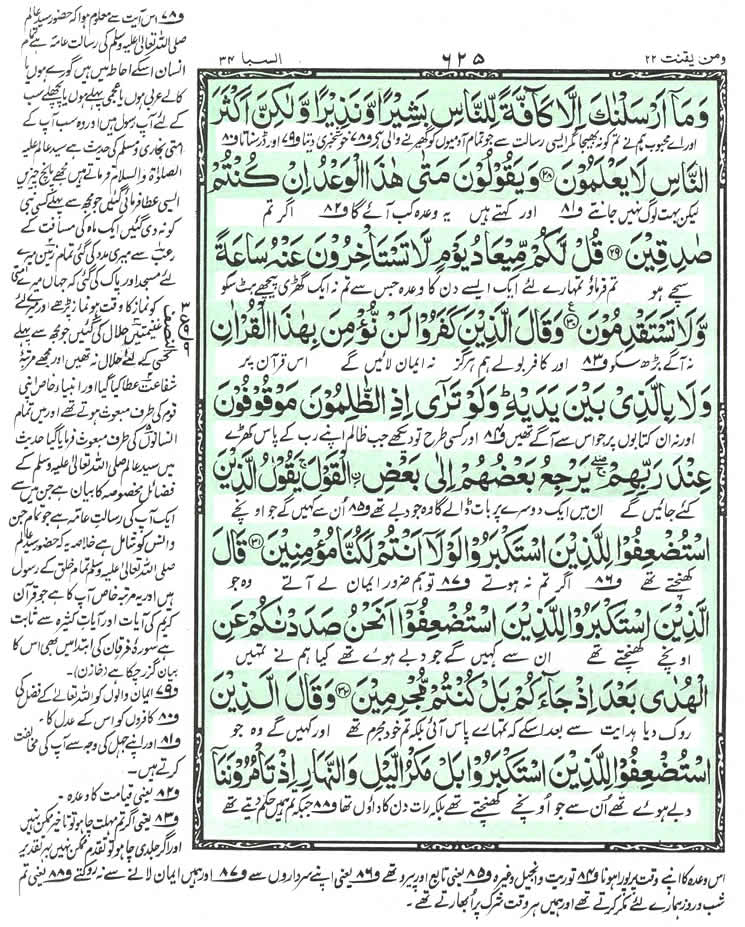 ومن یقنت ۲۲
۶۲۵
السبا ۳۴
وَمَآ اَرْسَلْنٰكَ اِلَّا كَآفَّةً لِّلنَّاسِ بَشِيْرًا وَّنَذِيْرًا وَّلٰكِنَّ اَكْثَرَ
اور اے محبوب ہم نے تم کو نہ بھیجا مگر ایسی رسالت سے جو تمام آدمیوں کو گھیرنے والی ہے و۷۸ خوشخبری دیتا و۷۹ اور ڈر سناتا و۸۰
النَّاسِ لَا يَعْلَمُوْنَ ۲۸ وَيَقُوْلُوْنَ مَتٰى هٰذَا الْوَعْدُ اِنْ كُنْتُمْ
لیکن بہت لوگ نہیں جانتے و۸۱ اور کہتے ہیں یہ وعدہ کب آئے گا و۸۲ اگر تم
صٰدِقِيْنَ ۲۹ قُلْ لَّكُمْ مِّيْعَادُ يَوْمٍ لَّا تَسْتَاْخِرُوْنَ عَنْهُ سَاعَةً
سچے ہو تم فرماؤ تمہارے لئے ایک ایسے دن کا وعدہ جس سے تم نہ ایک گھڑی پیچھے ہٹ سکو
وَّلَا تَسْتَقْدِمُوْنَ ۳۰ وَقَالَ الَّذِيْنَ كَفَرُوْا لَنْ نُّؤْمِنَ بِهٰذَا الْقُرْاٰنِ
نہ آگے بڑھ سکو و۸۳ اور کافر بولے ہم ہرگز نہ ایمان لائیں گے اس قرآن پر
وَلَا بِالَّذِيْ بَيْنَ يَدَيْهِ ؕ وَلَوْ تَرٰٓى اِذِ الظّٰلِمُوْنَ مَوْقُوْفُوْنَ
اور نہ ان کتابوں پر جو اس سے آگے تھیں و۸۴ اور کسی طرح تو دیکھے جب ظالم اپنے رب کے پاس کھڑے
عِنْدَ رَبِّهِمْ ۖۚ يَرْجِعُ بَعْضُهُمْ اِلٰى بَعْضِ ۨالْقَوْلَ ۚ يَقُوْلُ الَّذِيْنَ
کئے جائیں گے ان میں ایک دوسرے پر بات ڈالے گا وہ جو دبے تھے و۸۵ اُن سے کہیں گے جو اونچے
اسْتُضْعِفُوْا لِلَّذِيْنَ اسْتَكْبَرُوْا لَوْلَآ اَنْتُمْ لَكُنَّا مُؤْمِنِيْنَ ۳۱ قَالَ
کھنچتے تھے و۸۶ اگر تم نہ ہوتے و۸۷ تو ہم ضرور ایمان لے آتے وہ جو
الَّذِيْنَ اسْتَكْبَرُوْا لِلَّذِيْنَ اسْتُضْعِفُوْٓا اَنَحْنُ صَدَدْنٰكُمْ عَنِ
اونچے کھنچتے تھے ان سے کہیں گے جو دبے ہوئے تھے کیا ہم نے تمہیں
الْهُدٰى بَعْدَ اِذْ جَآءَكُمْ بَلْ كُنْتُمْ مُّجْرِمِيْنَ ۳۲ وَقَالَ الَّذِيْنَ
روک دیا ہدایت سے بعد اسکے کہ تمہارے پاس آئی بلکہ تم خود مجرم تھے اور کہیں گے وہ جو
اسْتُضْعِفُوْا لِلَّذِيْنَ اسْتَكْبَرُوْا بَلْ مَكْرُ الَّيْلِ وَالنَّهَارِ اِذْ تَاْمُرُوْنَنَآ
دبے ہوئے تھے اُن سے جو اُونچے کھنچتے تھے بلکہ رات دن کا داؤں تھا و۸۸ جبکہ تم ہمیں حکم دیتے تھے
و۷۸ اس آیت سے معلوم ہوا کہ حضور سید عالم
صلی اللہ تعالیٰ علیہ وسلم کی رسالت عامہ ہے تمام
انسان اسکے احاطہ میں ہیں گورے ہوں یا
کالے عربی ہوں یا عجمی پہلے ہوں یا پچھلے سب
کے لئے آپ رسول ہیں اور وہ سب آپ کے
امتی بخاری و مسلم کی حدیث ہے سید عالم علیہ
الصلاۃ والسلام فرماتے ہیں مجھے پانچ چیزیں
ایسی عطا فرمائی گئیں جو مجھ سے پہلے کسی نبی
کو نہ دی گئیں ایک ماہ کی مسافت کے
رعب سے میری مدد کی گئی تمام زمین میرے
لئے مسجد اور پاک کی گئی کہ جہاں میرے امتی
کو نماز کا وقت ہو نماز پڑھے اور میرے لئے
غنیمتیں حلال کی گئیں جو مجھ سے پہلے
کسی کے لئے حلال نہ تھیں اور مجھے مرتبۂ
شفاعت عطا کیا گیا اور انبیاء خاص اپنی
قوم کی طرف مبعوث ہوتے تھے اور میں تمام
انسانوں کی طرف مبعوث فرمایا گیا حدیث
میں سید عالم صلی اللہ تعالیٰ علیہ وسلم کے
فضائل مخصوصہ کا بیان ہے جن میں سے
ایک آپ کی رسالت عامہ ہے جو تمام جن
و انس کو شامل ہے خلاصہ یہ کہ حضور سید عالم
صلی اللہ تعالیٰ علیہ وسلم تمام خلق کے رسول
ہیں اور یہ مرتبہ خاص آپ کا ہے جو قرآن
کریم کی آیات اور احادیث کثیرہ سے ثابت
ہے سورۂ فرقان کی ابتدا میں بھی اس کا
بیان گزر چکا ہے (خازن)
و۷۹ ایمان والوں کو اللہ تعالیٰ کے فضل کی
و۸۰ کافروں کو اس کے عدل کا۔
و۸۱ اور اپنے جہل کی وجہ سے آپ کی مخالفت
کرتے ہیں۔
و۸۲ یعنی قیامت کا وعدہ۔
و۸۳ یعنی اگر تم مہلت چاہو تو تاخیر ممکن نہیں
اور اگر جلدی چاہو تو تقدم ممکن نہیں بہر تقدیر
اس وعدہ کا اپنے وقت پر پورا ہونا و۸۴ توریت و انجیل وغیرہ و۸۵ یعنی تابع اور پیرو تھے و۸۶ یعنی اپنے سرداروں سے و۸۷ اور ہمیں ایمان لانے سے نہ روکتے و۸۸ یعنی تم
شب و روز ہمارے لئے مکر کرتے تھے اور ہمیں ہر وقت شرک پر ابھارتے تھے۔